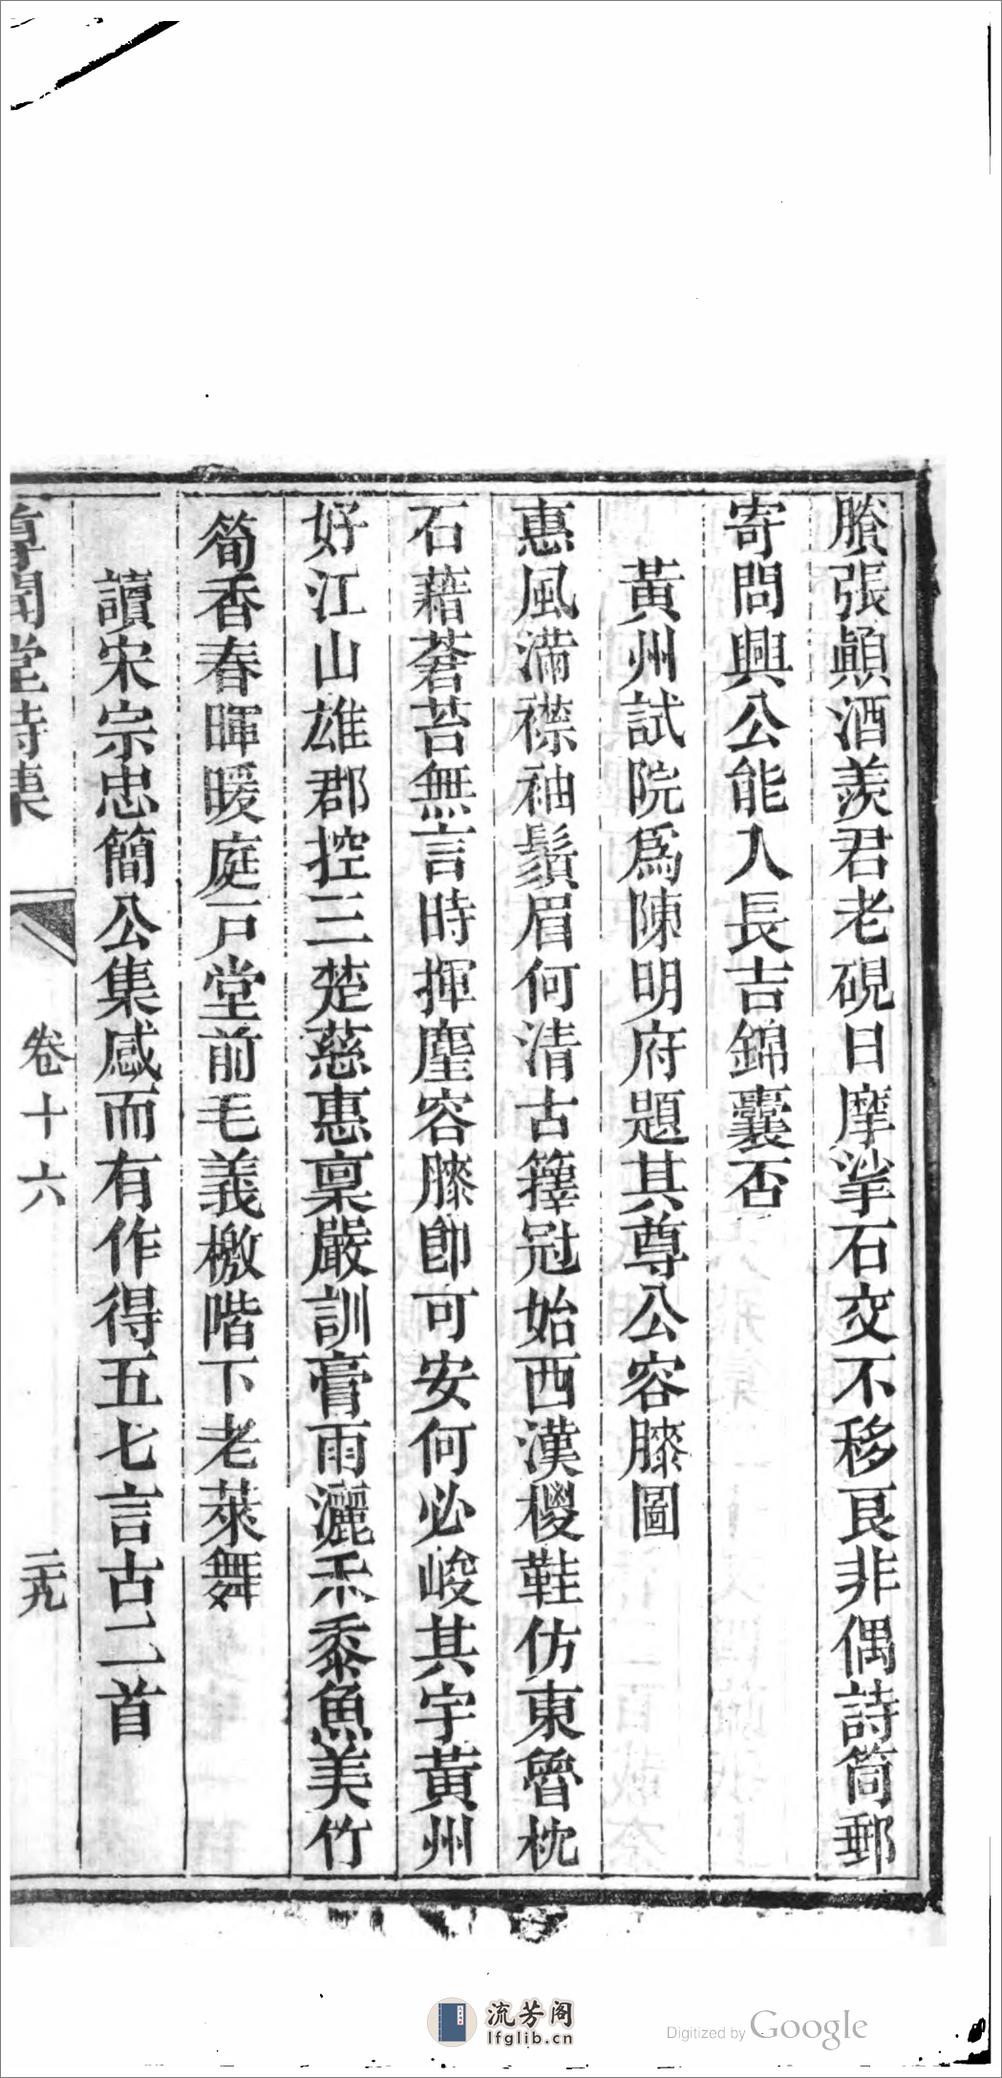 賸張顛酒羨君老硯日摩挲石交不移良非偶詩筒郵
寄問興公能入長吉錦囊否
黃州試院爲陳明府題其尊公容膝圖
惠風滿襟袖鬚眉何清古籜冠始西漢椶鞋仿東魯枕
石藉蒼苔無言時揮麈容膝卽可安何必峻其宇黃州
好江山雄郡控三楚慈惠稟嚴訓膏雨灑禾黍魚美竹
筍香春暉暖庭戸堂前毛義檄階下老萊舞
讀宋宗忠簡公集感而有作得五七言古二首
聞堂詩集
卷十六
二九
流芳阁
lfglib.cn
Digitized by Google